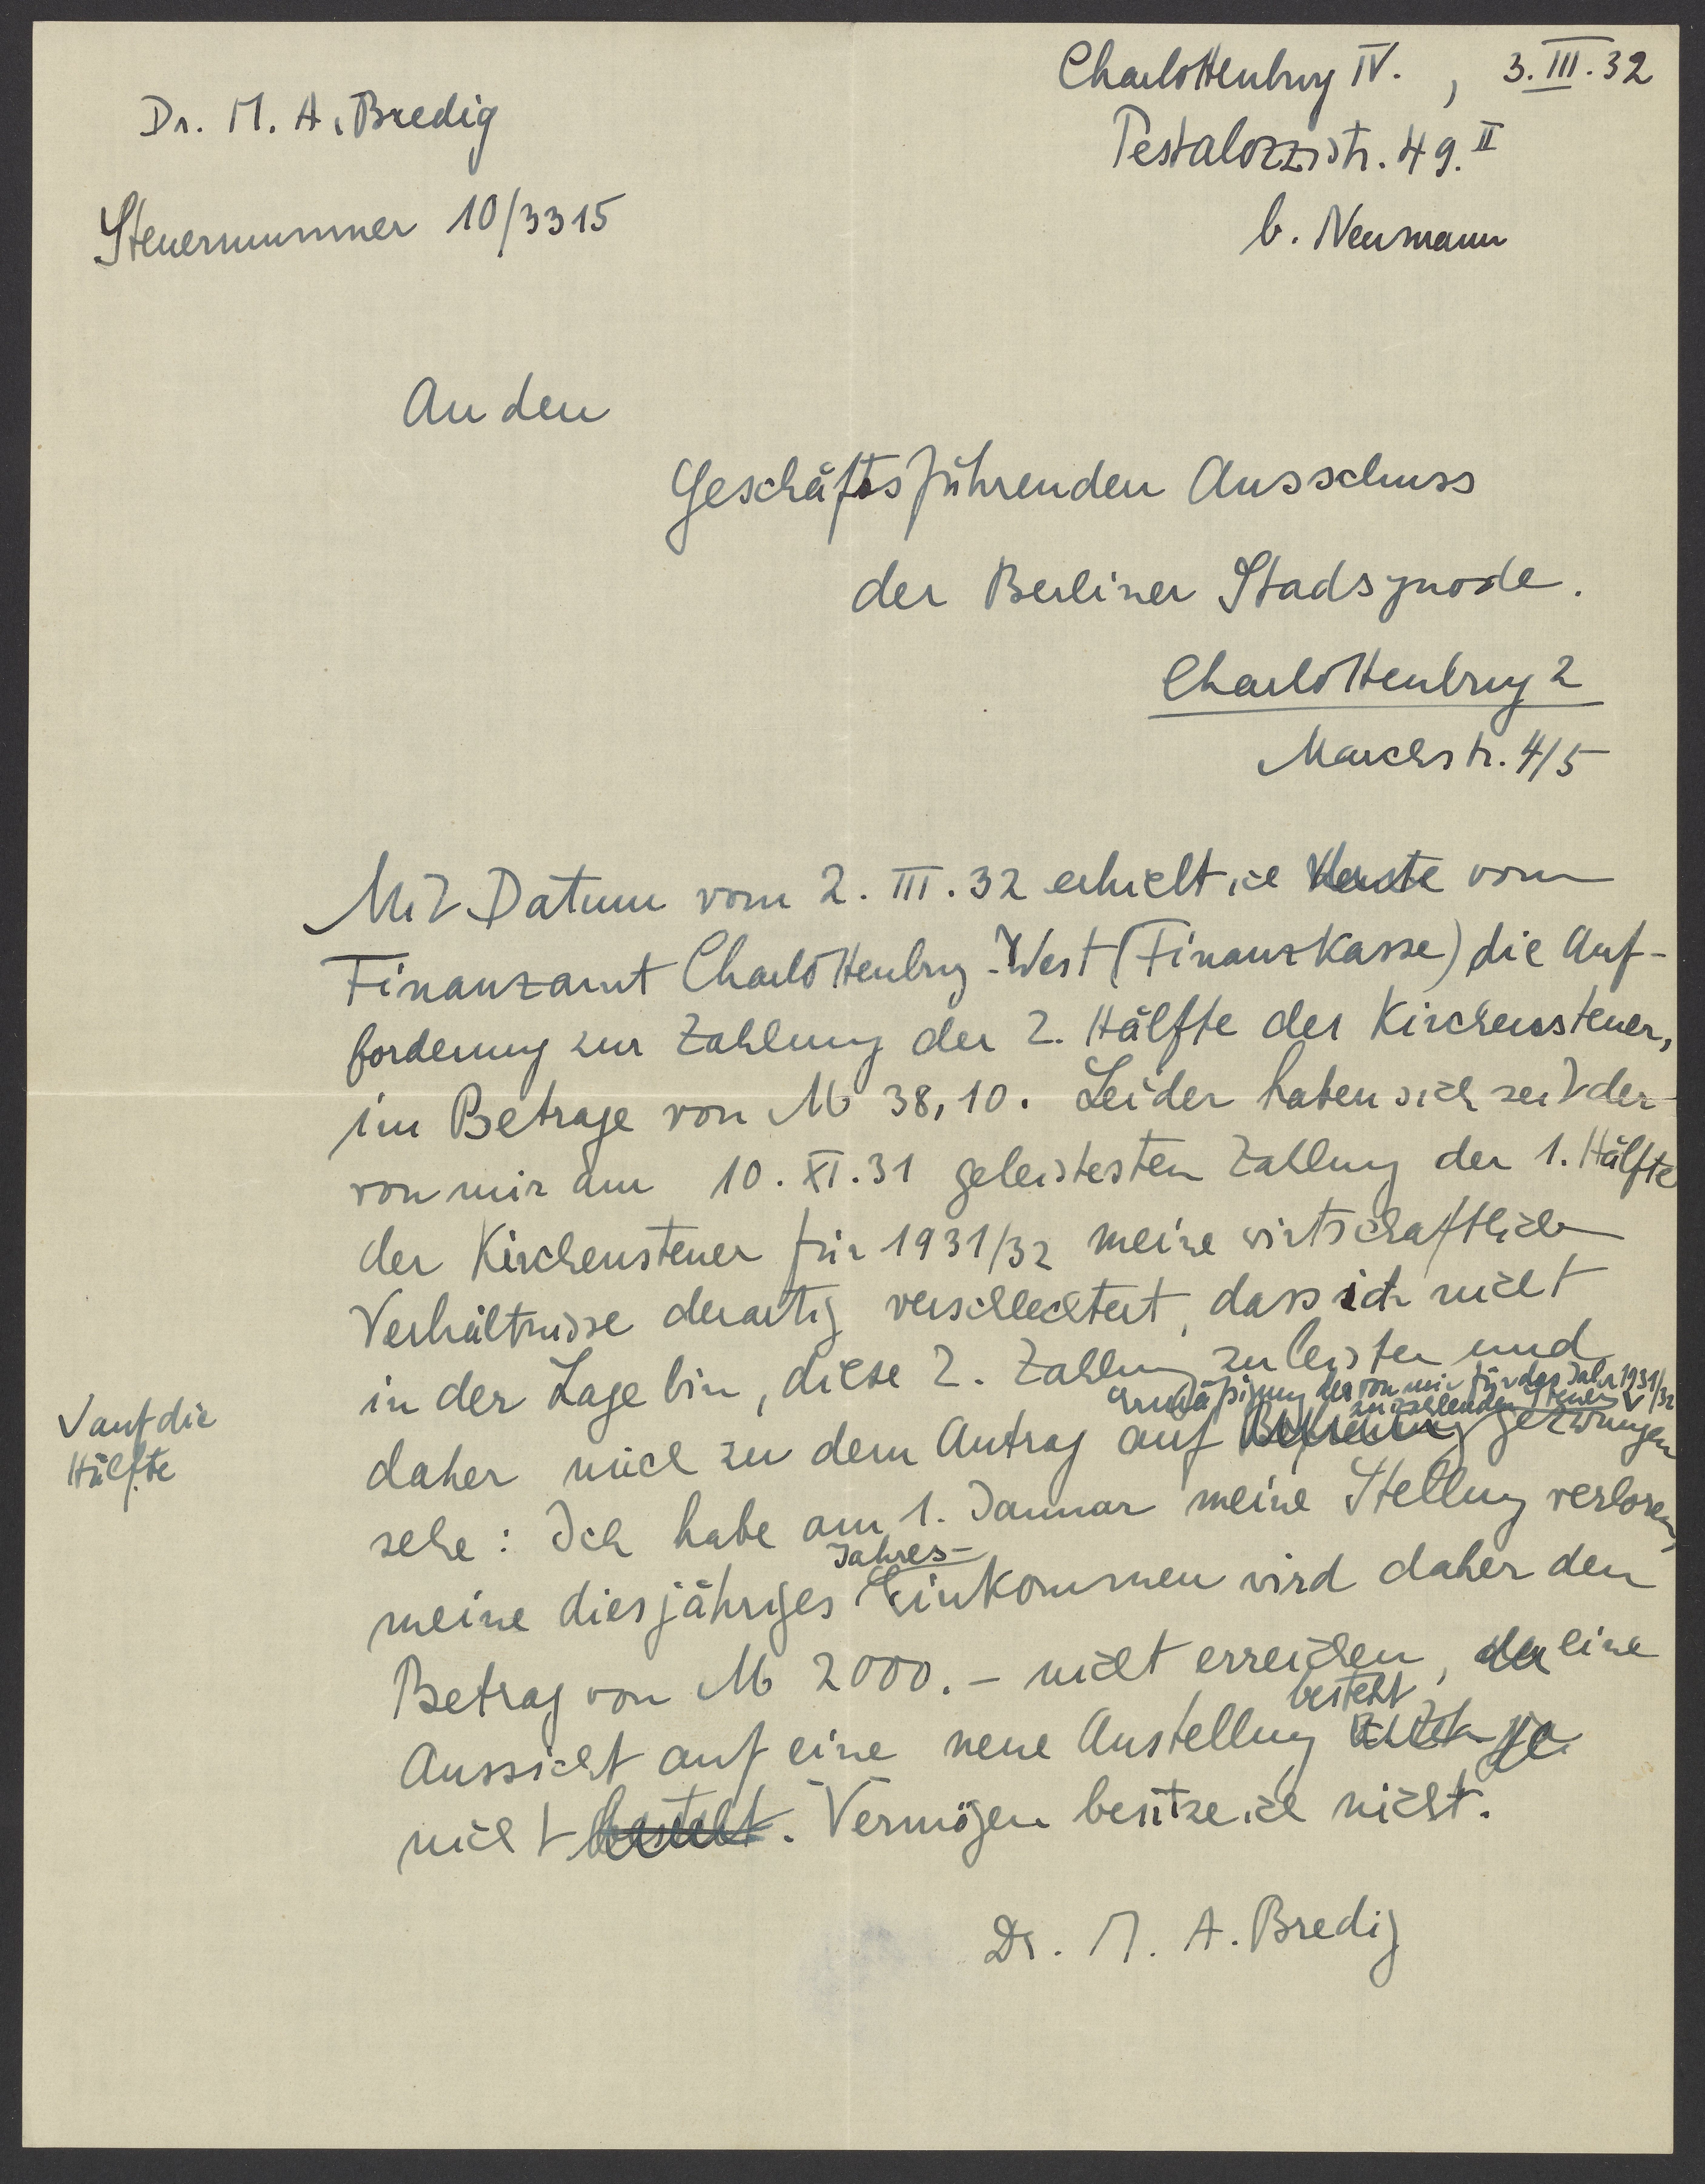 Charlottenburg IV. , 3.III.32
Dr. M. A. Bredig
Pestalozzistr. 49.II
Steuernummer 10/3315
b. Neumann
An den
Geschäftsführenden Ausschuss
der Berliner Stadsynode.
Charlottenburg 2
Marchstr. 4/5
Mit Datum vom 2. III. 32 erhielt ich heute vom
Finanzamt Charlottenburg-West (Finanzkasse) die Auf-
forderung zur Zahlung der 2. Hälfte der Kirchensteuer,
im Betrage von M 38,10. Leider haben sich seit der
von mir am 10. XI. 31 geleistesten Zahlung der 1. Hälfte
der Kirchensteuer für 1931/32 meine wirtschaftlichen
Verhältnisse derartig verschlechtert, dass ich nicht
in der Lage bin, diese 2. Zahlung zu leisten und
Ermäßigung der von mir für das Jahr 1931/32
zu zahlenden Steuer V
V auf die
Hälfte
daher mich zu dem Antrag auf Befreiung gezwungen
sehe: Ich habe am 1. Januar meine Stellung verloren,
Jahres-
meine diesjähriges Einkommen wird daher den
Betrag von M 2000.- nicht erreichen, da eine
besteht
Aussicht auf eine neue Anstellung
nicht besteht. Vermögen besitze ich nicht.
Dr. M. A. Bredig